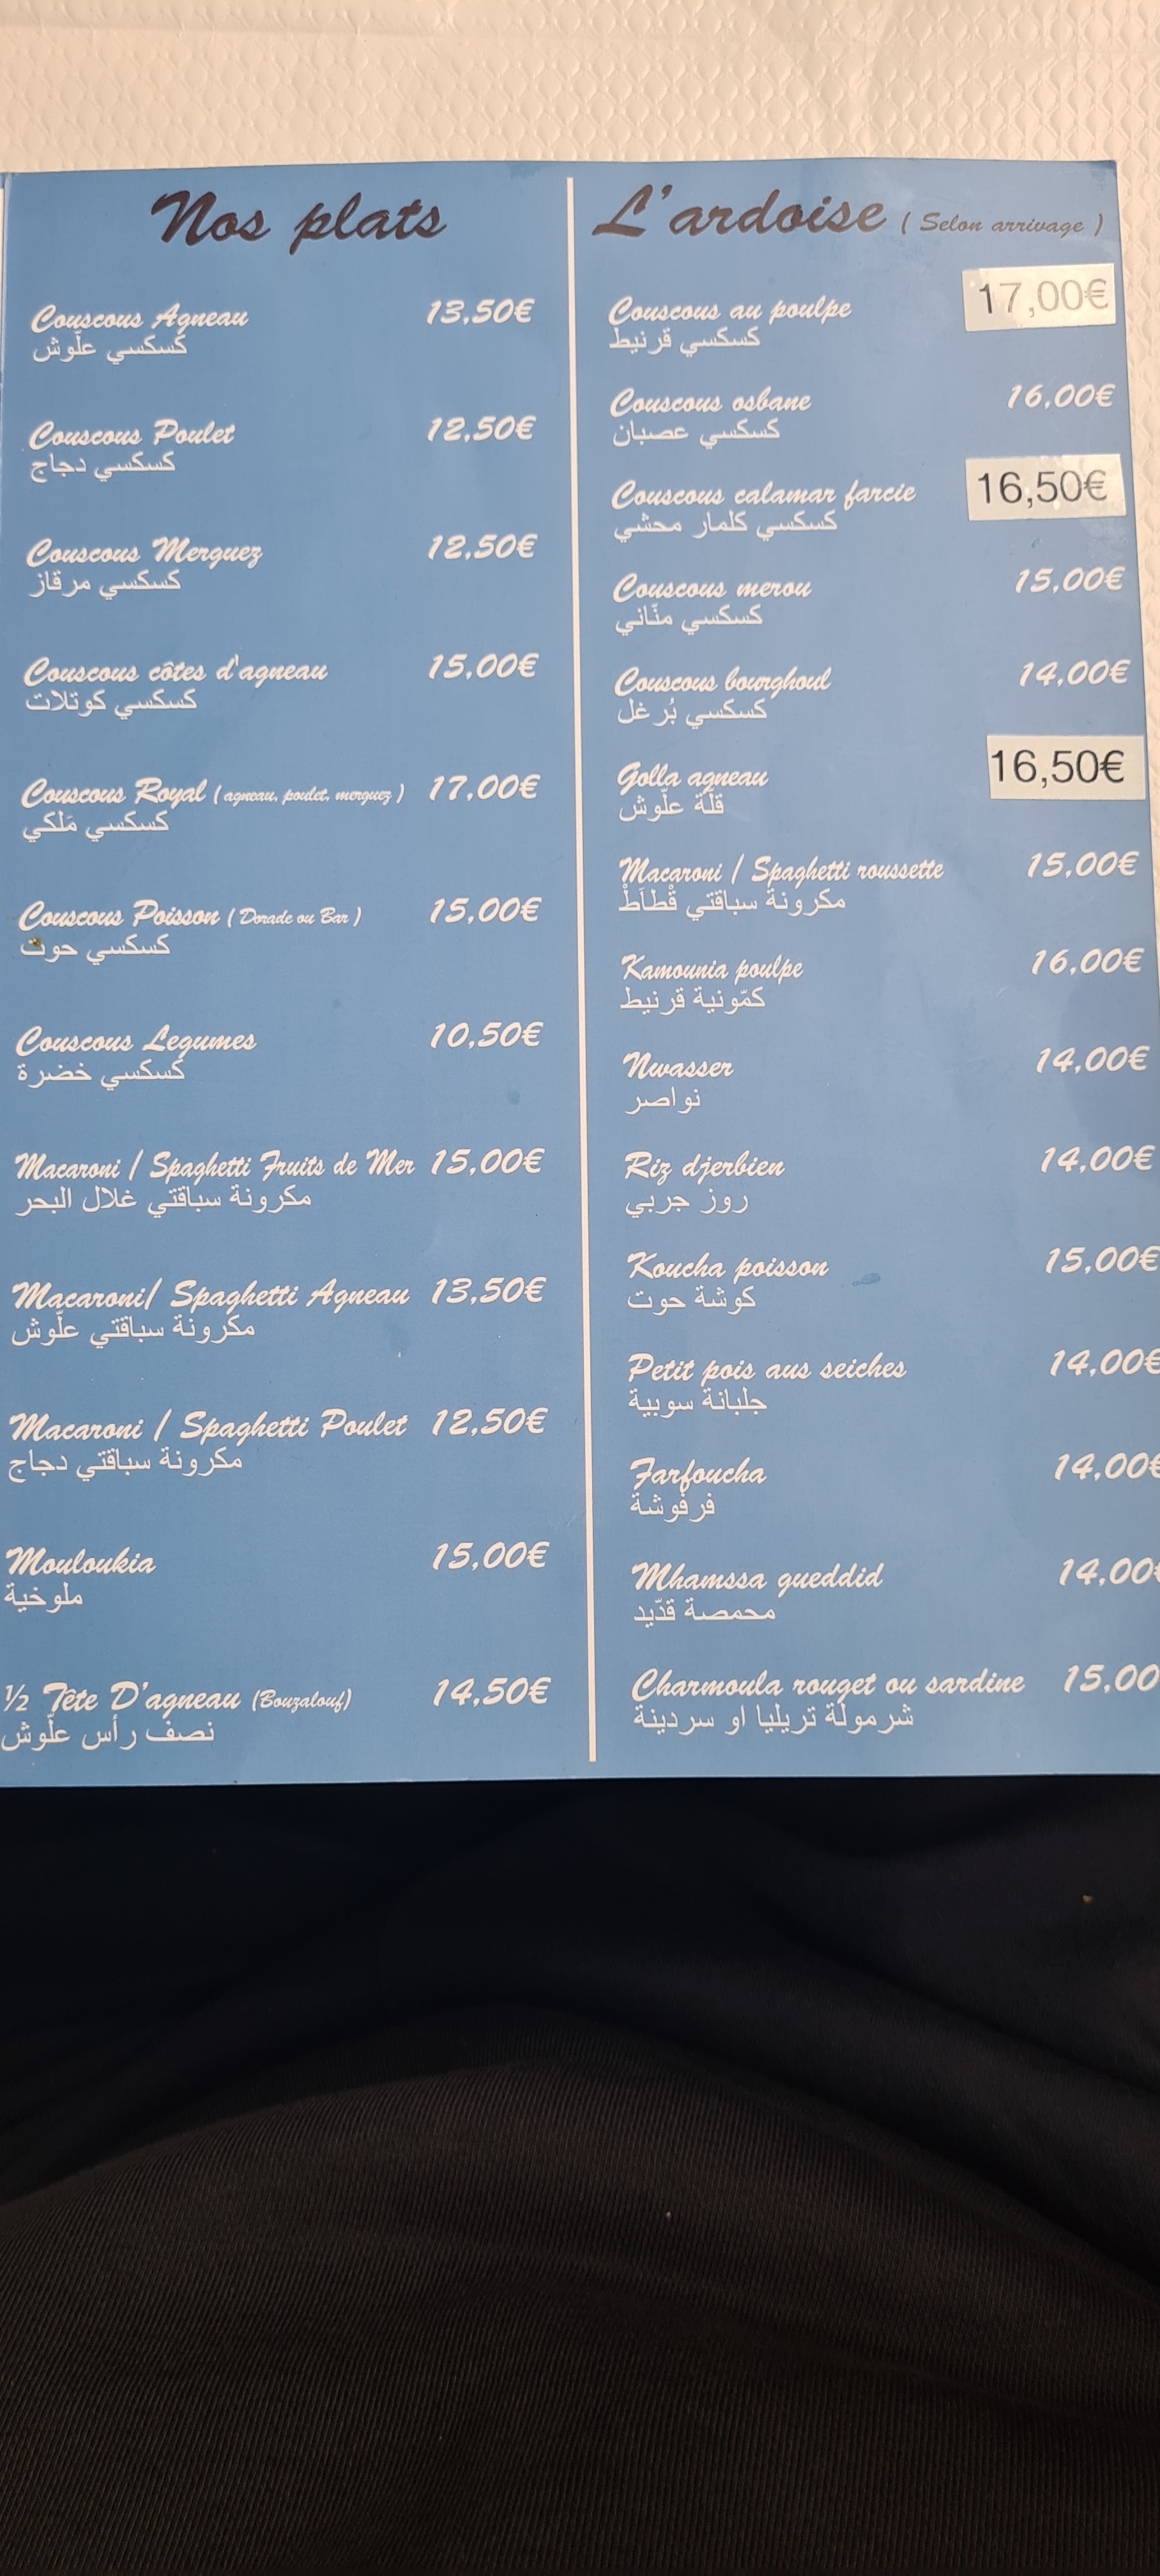 Nos plats
Couscous Agneau 13,50€
كسكسي علّوش
Couscous Poulet 12,50€
كسكسي دجاج
Couscous Merguez 12,50€
كسكسي مرقاز
Couscous côtes d'agneau 15,00€
كسكسي كوتلات
Couscous Royal ( agneau, poulet, merguez ) 17,00€
كسكسي مَلكي
Couscous Poisson ( Dorade ou Bar ) 15,00€
كسكسي حوت
Couscous Legumes 10,50€
كسكسي خضرة
Macaroni / Spaghetti Fruits de Mer 15,00€
مكرونة سباقتي غلال البحر
Macaroni/ Spaghetti Agneau 13,50€
مكرونة سباقتي علّوش
Macaroni / Spaghetti Poulet 12,50€
مكرونة سباقتي دجاج
Mouloukia 15,00€
ملوخية
½ Tête D'agneau (Bouzalouf) 14,50€
نصف رأس علّوش
L'ardoise ( Selon arrivage )
Couscous au poulpe 17,00€
كسكسي قرنيط
Couscous osbane 16,00€
كسكسي عصبان
Couscous calamar farcie 16,50€
كسكسي كلمار محشي
Couscous merou 15,00€
كسكسي منّاني
Couscous bourghoul 14,00€
كسكسي بُرغل
Golla agneau 16,50€
قلّة علّوش
Macaroni / Spaghetti roussette 15,00€
مكرونة سباقتي قْطَاطْ
Kamounia poulpe 16,00€
كمّونية قرنيط
Nwasser 14,00€
نواصر
Riz djerbien 14,00€
روز جربي
Koucha poisson 15,00€
كوشة حوت
Petit pois aus seiches 14,00€
جلبانة سوبية
Farfoucha 14,00€
فرفوشة
Mhamssa gueddid 14,00€
محمصة قدّيد
Charmoula rouget ou sardine 15,00
شرمولة تريليا او سردينة